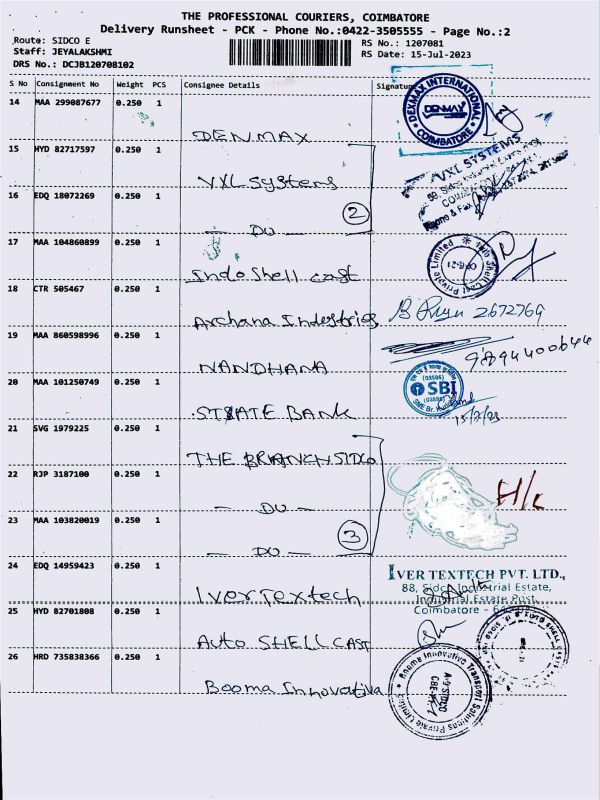 THE PROFESSIONAL COURIERS, COIMBATORE
Delivery Runsheet - PCK - Phone No.:0422-3505555 - Page No.:2
Route: SIDCO E
Staff: JEYALAKSHMI
DRS No.: DCJB120708102
RS No.: 1207081
RS Date: 15-Jul-2023
S No Consignment No Weight PCS Consignee Details Signature
14 MAA 299087677 0.250 1
DENMAX
DEKMAX INTERNATIONAL
DENMAX
COIMBATORE
15 HYD 82717597 0.250 1
VXL Systems
VXL SYSTEMS
16 EDQ 18072269 0.250 1
— DU —
2
17 MAA 104860899 0.250 1
Indo Shell cast
Shell Cast Private Limited
18 CTR 505467 0.250 1
Archana Industries
2672769
19 MAA 860598996 0.250 1
NANDHANA
9894400644
20 MAA 101250749 0.250 1
STATE BANK
SBI
15/7/23
21 SVG 1979225 0.250 1
THE BRANCH SIDCO
22 RJP 3187100 0.250 1
— DU —
H/c
23 MAA 103820019 0.250 1
— DU —
3
24 EDQ 14959423 0.250 1
Iver Textech
IVER TEXTECH PVT. LTD.,
88, Sidco Industrial Estate,
Industrial Estate Post,
Coimbatore -
25 HYD 82701808 0.250 1
AUTO SHELL CAST
26 HRD 735838366 0.250 1
Booma Innovativa
Booma Innovative Transport Solutions Private Limited